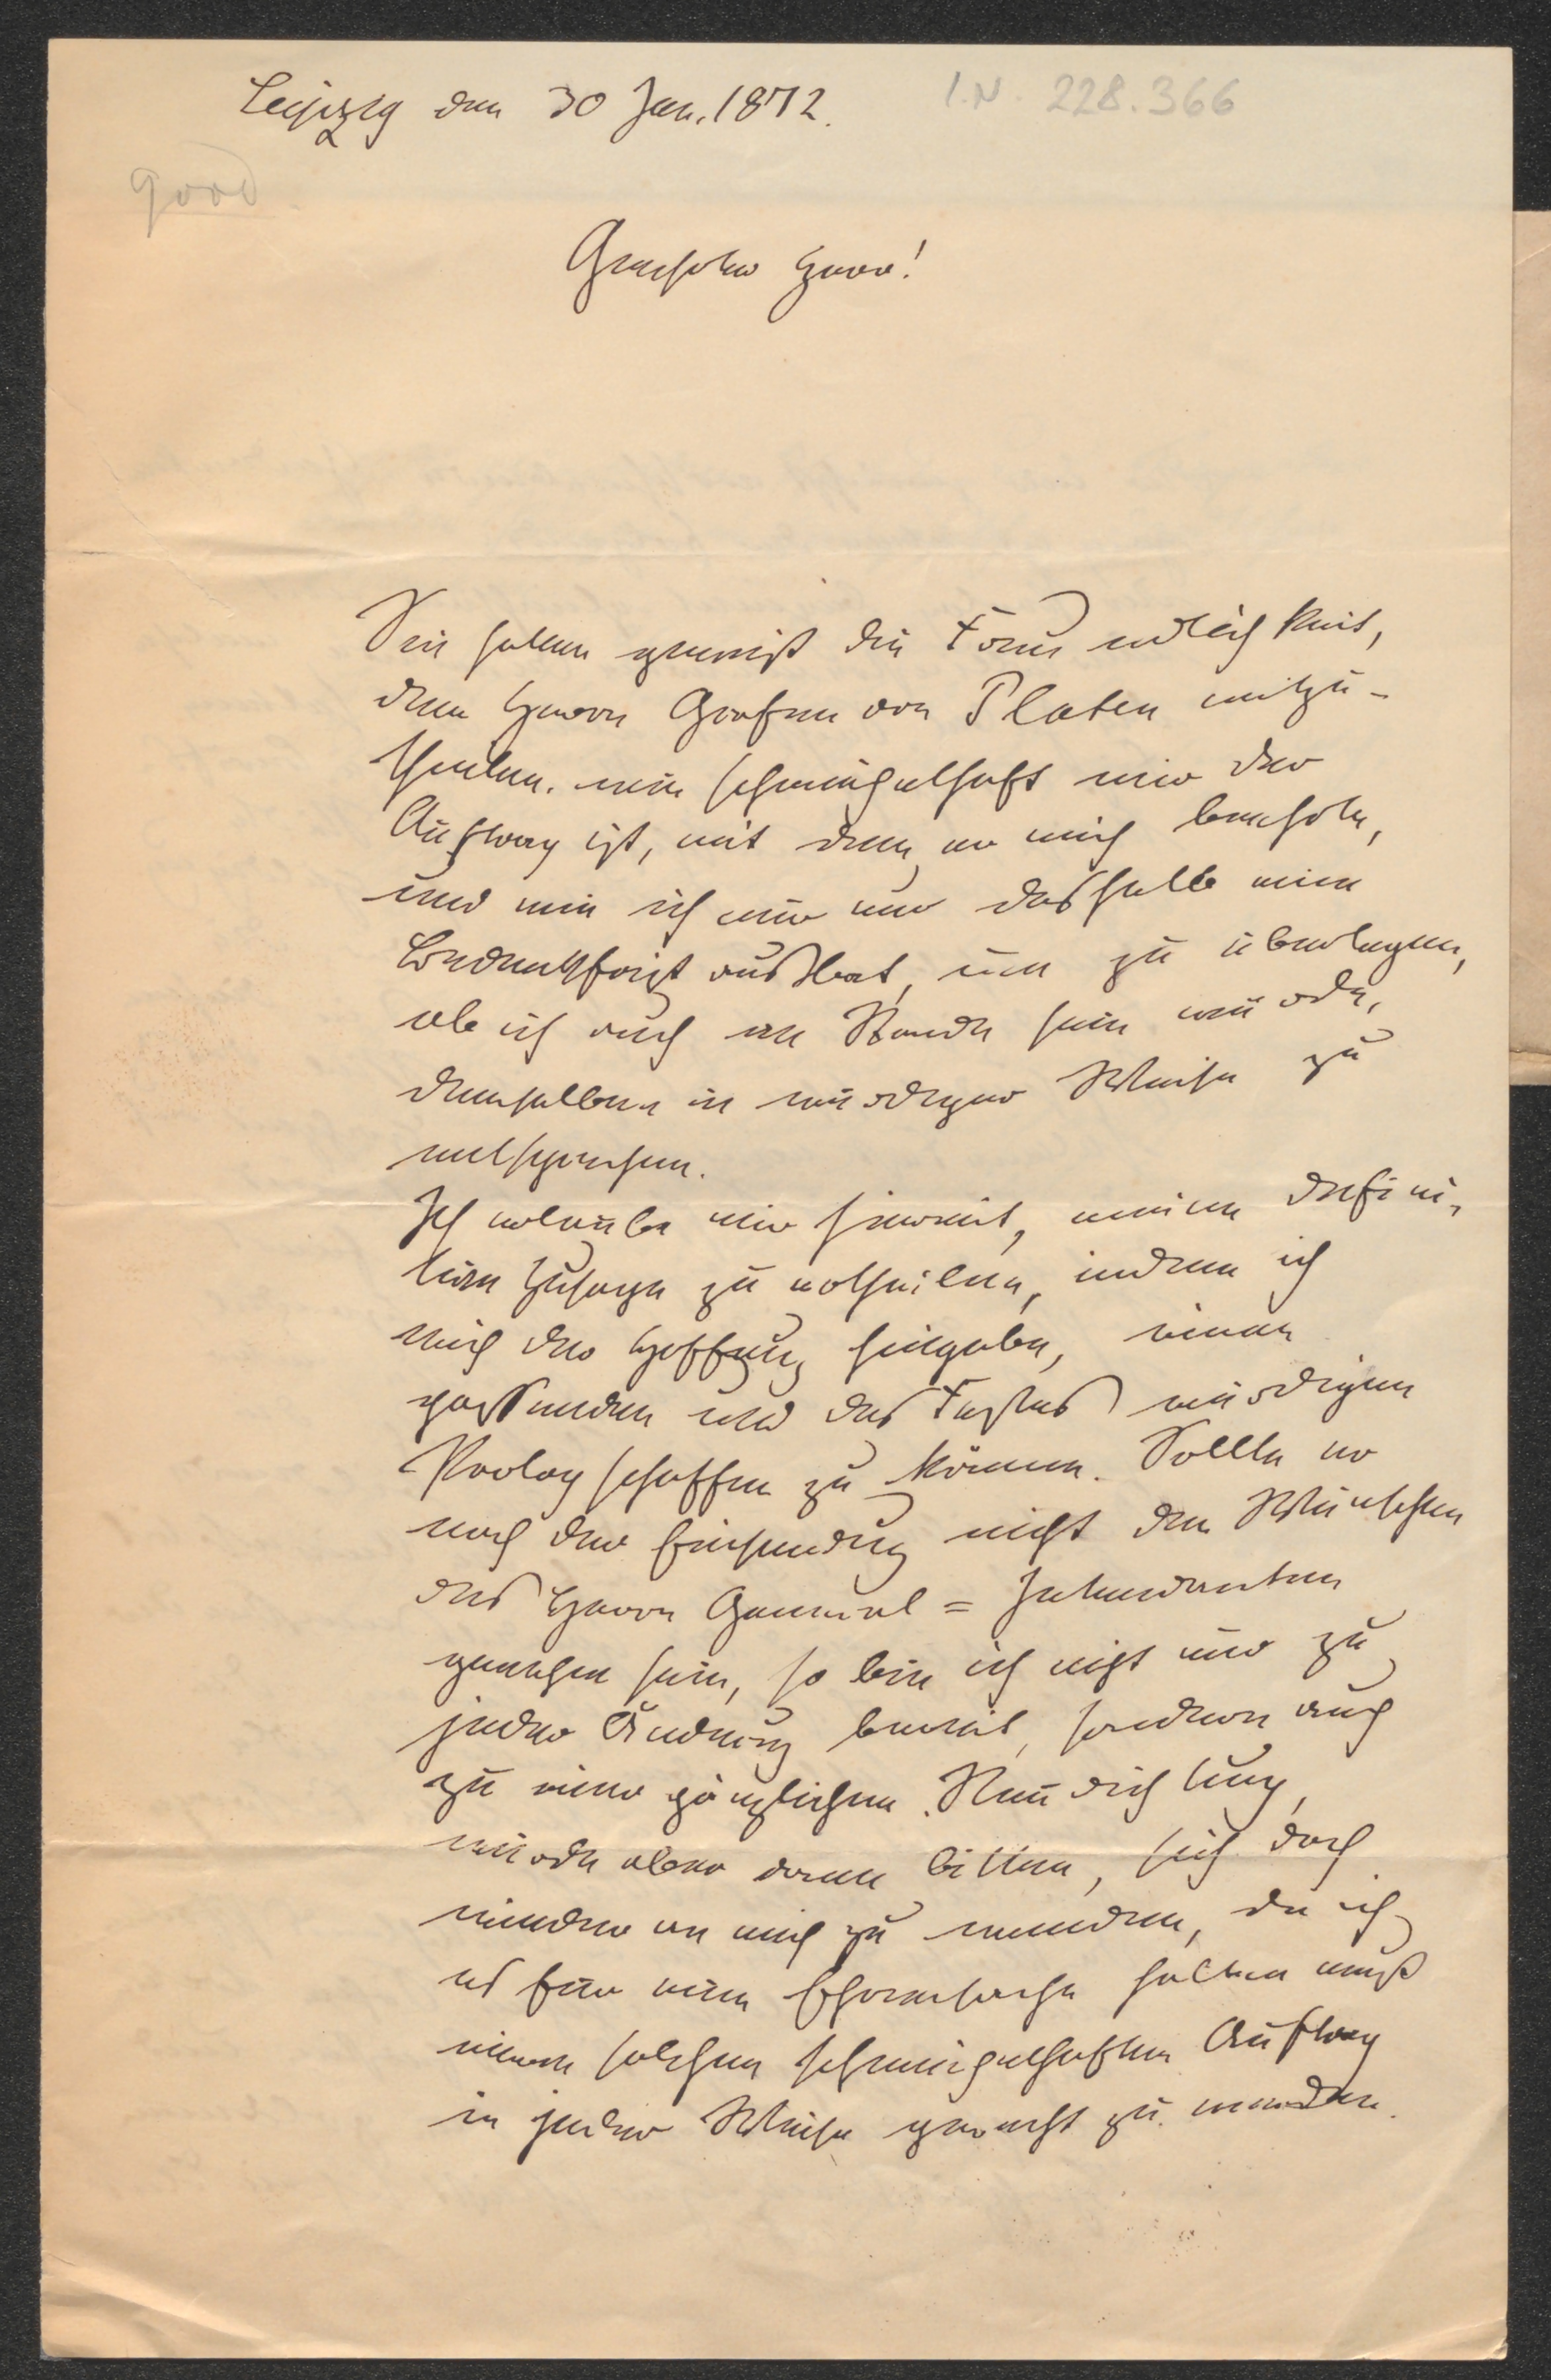 Leipzig den 30 Jan. 1872.
I.N. 228.366
Geehrter Herr!
Sie haben gewiß die Freundlichkeit,
dem Herrn Grafen von Platen mitzu-
theilen, wie schmeichelhaft mir der
Auftrag ist, mit dem er mich beehrte,
und wie ich mir nur deshalb eine
Bedenkfrist ausbat, um zu überlegen,
ob ich auch im Stande sein würde,
demselben in würdiger Weise zu
entsprechen.
Ich erlaube mir hiermit, meine defini-
tive Zusage zu ertheilen, indem ich
mich der Hoffnung hingebe, einen
passenden und des Festes würdigen
Prolog schaffen zu können. Sollte er
nach der Einsendung nicht den Wünschen
des Herrn General-Intendanten
genehm sein, so bin ich nicht nur zu
jeder Änderung bereit, sondern auch
zu einer gänzlichen Neudichtung,
würde aber dann bitten, sich doch
wieder an mich zu wenden, da ich
es für eine Ehrensache halten muß
einem solchen schmeichelhaften Auftrag
in jeder Weise gerecht zu werden.